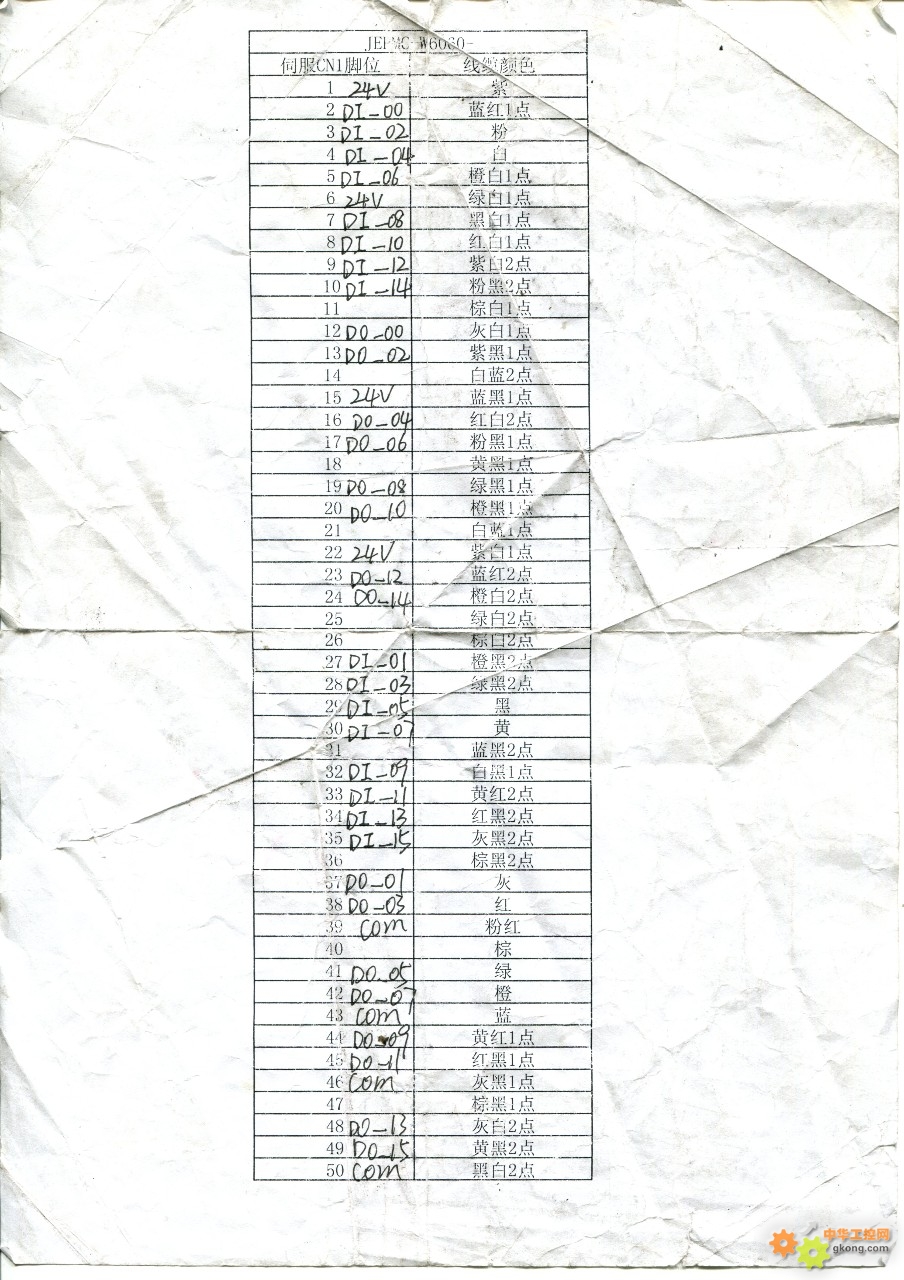 JEPMC-W6060-
伺服CN1脚位 线缆颜色
1 24V 紫
2 DI_00 蓝红1点
3 DI_02 粉
4 DI_04 白
5 DI_06 橙白1点
6 24V 绿白1点
7 DI_08 黑白1点
8 DI_10 红白1点
9 DI_12 紫白2点
10 DI_14 粉黑2点
11 棕白1点
12 DO_00 灰白1点
13 DO_02 紫黑1点
14 白蓝2点
15 24V 蓝黑1点
16 DO_04 红白2点
17 DO_06 粉黑1点
18 黄黑1点
19 DO_08 绿黑1点
20 DO_10 橙黑1点
21 白蓝1点
22 24V 紫白1点
23 DO_12 蓝红2点
24 DO_14 橙白2点
25 绿白2点
26 棕白2点
27 DI_01 橙黑2点
28 DI_03 绿黑2点
29 DI_05 黑
30 DI_07 黄
31 蓝黑2点
32 DI_09 白黑1点
33 DI_11 黄红2点
34 DI_13 红黑2点
35 DI_15 灰黑2点
36 棕黑2点
37 DO_01 灰
38 DO_03 红
39 COM 粉红
40 棕
41 DO_05 绿
42 DO_07 橙
43 COM 蓝
44 DO_09 黄红1点
45 DO_11 红黑1点
46 COM 灰黑1点
47 棕黑1点
48 DO_13 灰白2点
49 DO_15 黄黑2点
50 COM 黑白2点
中华工控网
gkong.com